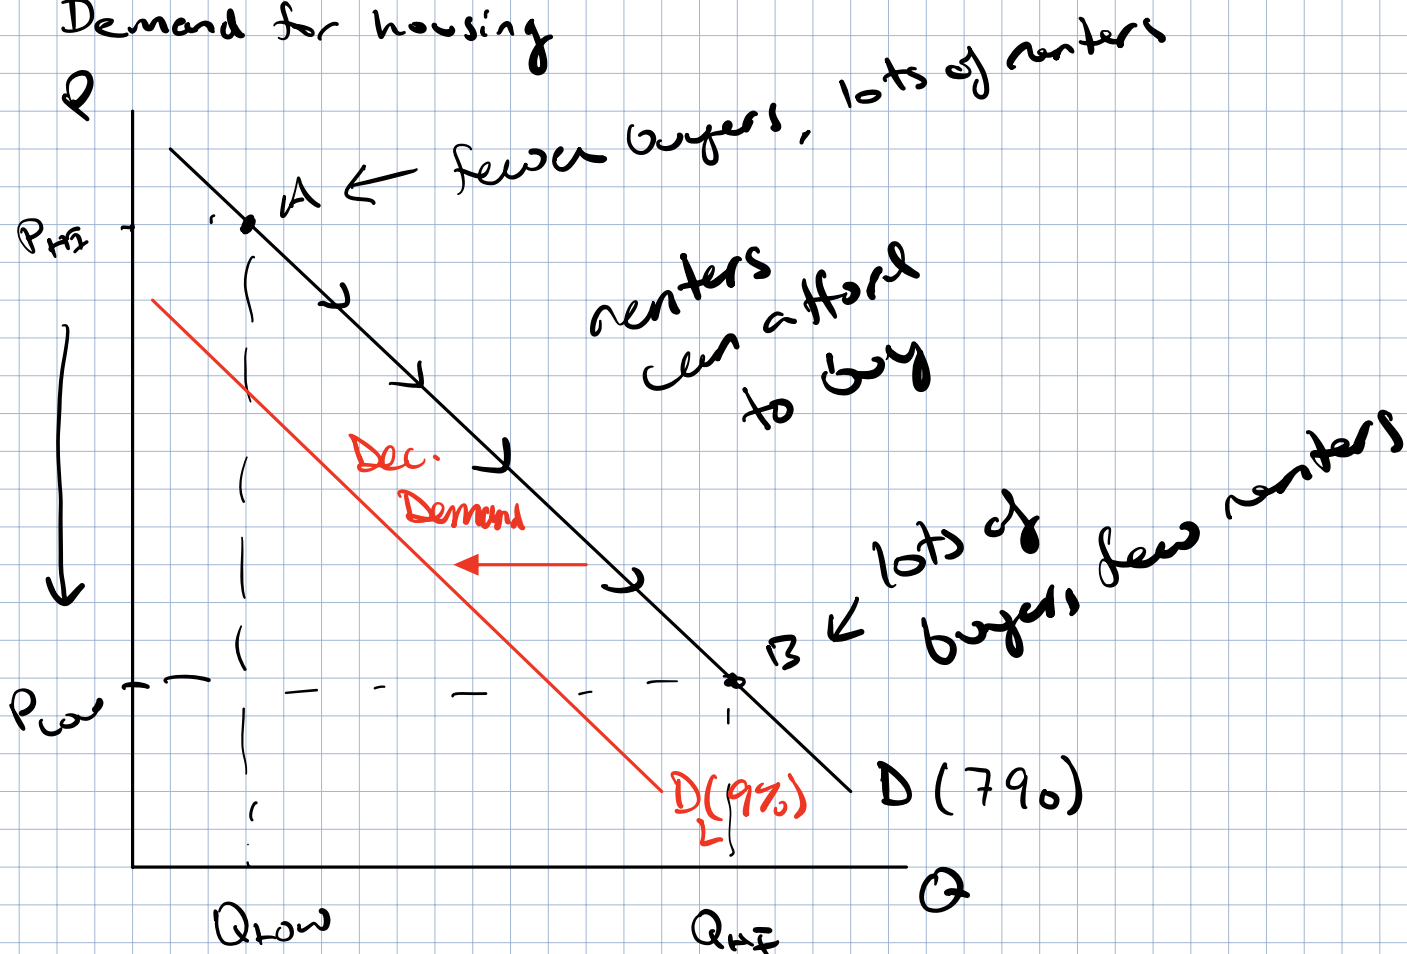 Demand for housing
P
A ← fewer buyers, lots of renters
P HI
renters
can afford
to buy
Dec.
Demand
lots of
buyers few renters
B
P Low
D (7%)
D L (9%)
Q
Q LOW
Q HI